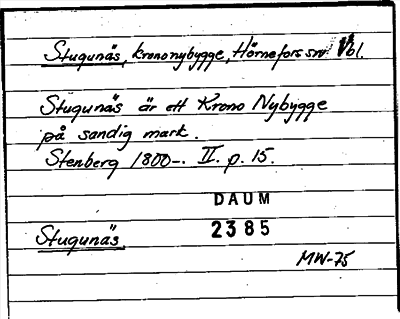 Stugunäs, krononybygge, Hörnefors sn Vbl.
Stugunäs är ett Krono Nybygge
på sandig mark.
Stenberg 1800-. II. p. 15.
DAUM
2385
Stugunäs
MW-75